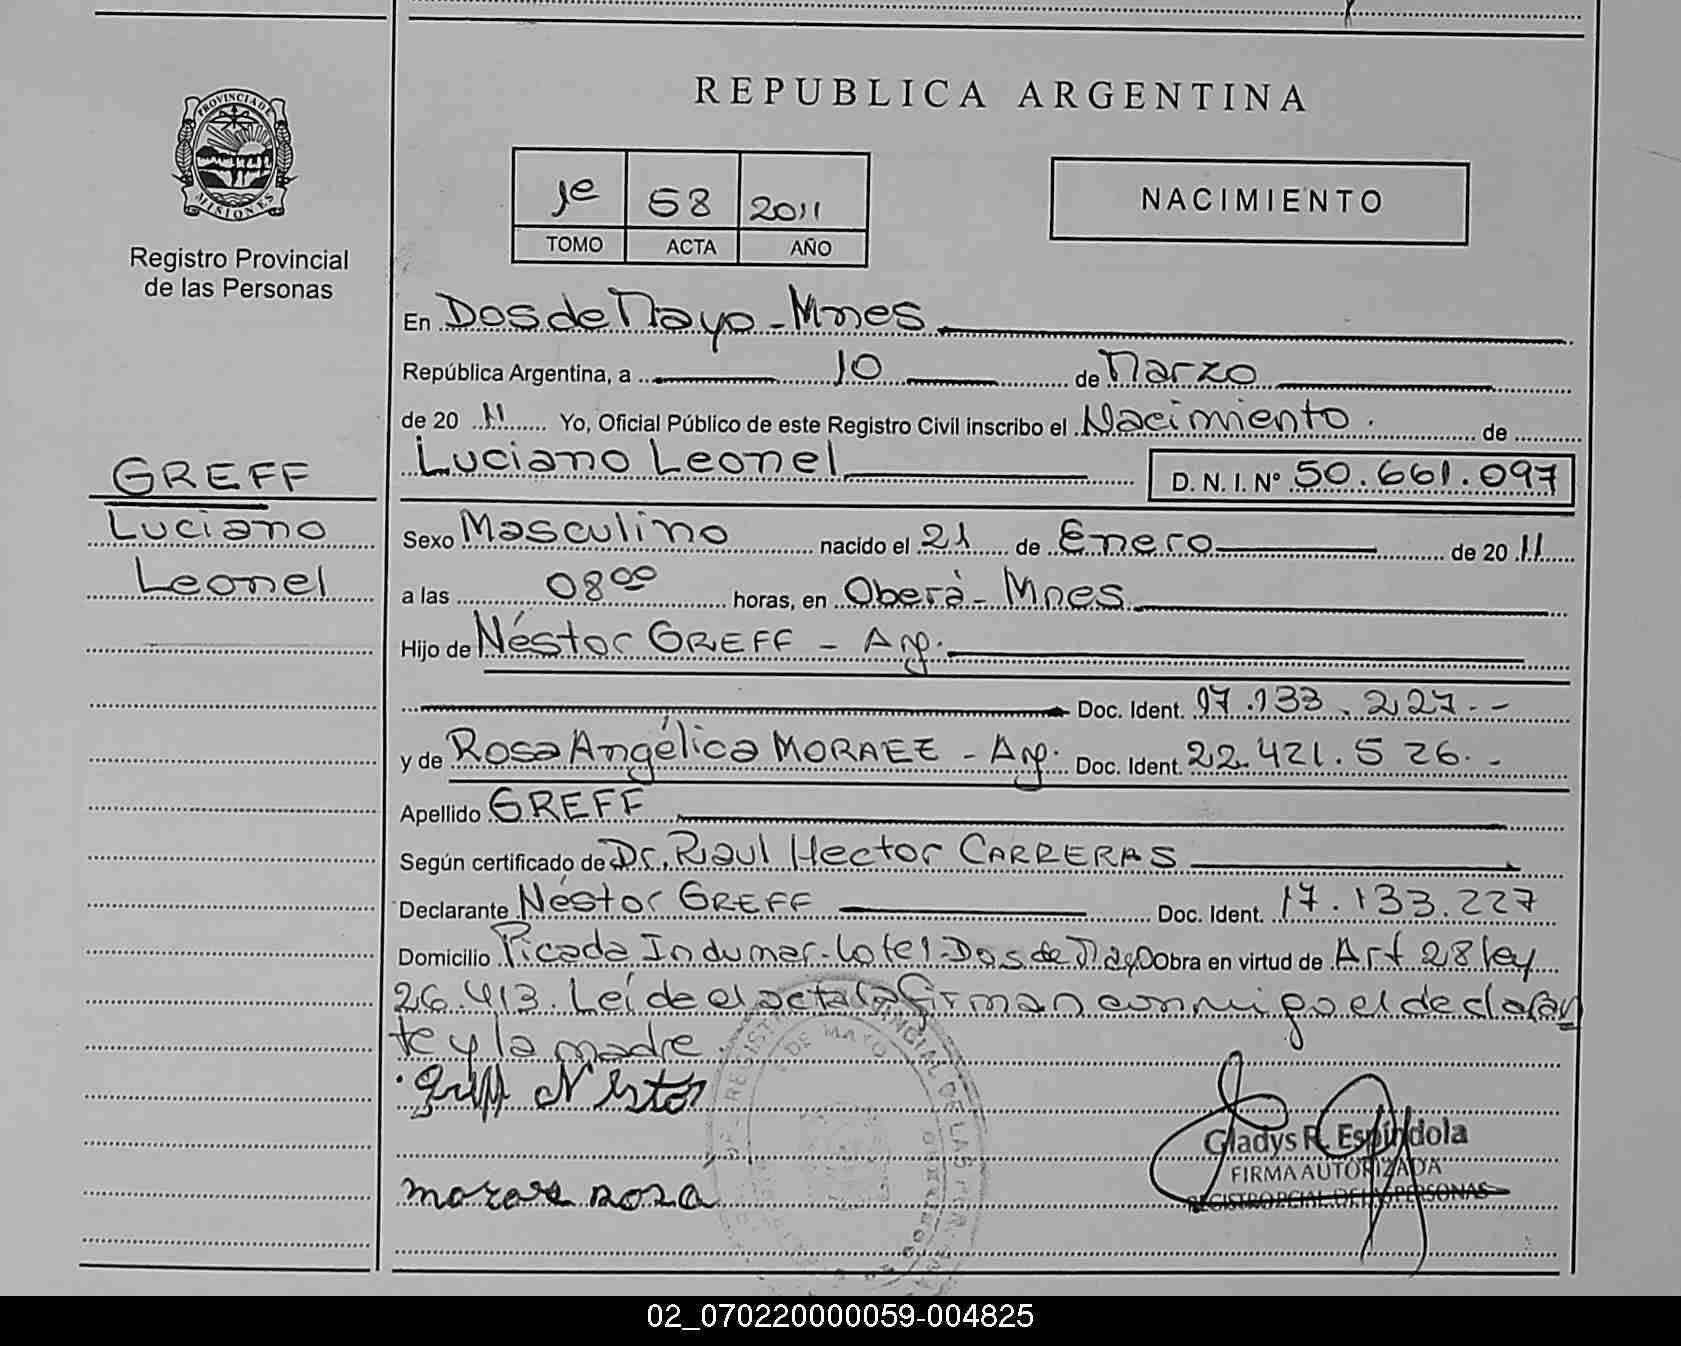 REPUBLICA ARGENTINA
PROVINCIA DE
MISIONES
Registro Provincial
de las Personas
1º 58 2011
TOMO ACTA AÑO
NACIMIENTO
En Dos de Mayo - Mnes
República Argentina, a 10 de Marzo
de 20 11 Yo, Oficial Público de este Registro Civil inscribo el Nacimiento. de
Luciano Leonel D. N. I. Nº 50.661.097
GREFF
Luciano
Leonel
Sexo Masculino nacido el 21 de Enero de 20 11
a las 08 00 horas, en Oberá - Mnes
Hijo de Néstor GREFF - Arg.
Doc. Ident. 17.133.227.-
y de Rosa Angélica MORAEZ - Arg. Doc. Ident. 22.421.526.-
Apellido GREFF
Según certificado de Dr. Raul Hector CARRERAS
Declarante Néstor GREFF Doc. Ident. 17.133.227
Domicilio Picada Indumar - Lote 1 - Dos de Mayo Obra en virtud de Art 28 ley
26.413. Leída el acta la firman conmigo el declaran
te y la madre
Greff Néstor
Gladys R. Espíndola
FIRMA AUTORIZADA
REGISTRO PCIAL. DE LAS PERSONAS
moraez rosa
02_070220000059-004825